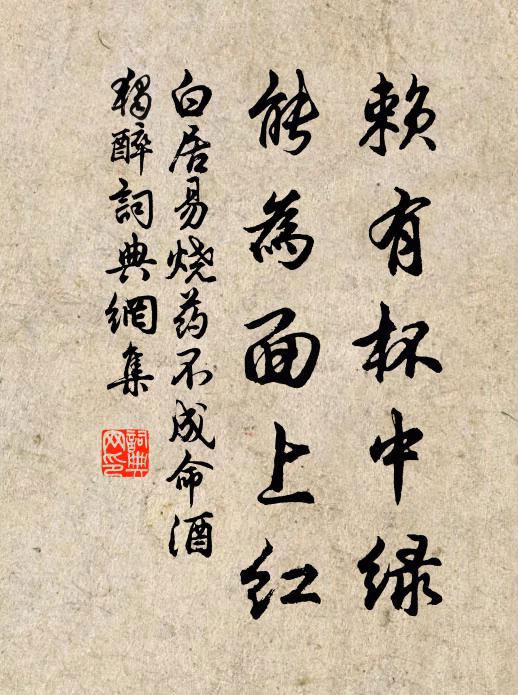 赖有杯中绿
能為面上红
白居易烧药不成命酒
独醉詞典網集
詞典网印